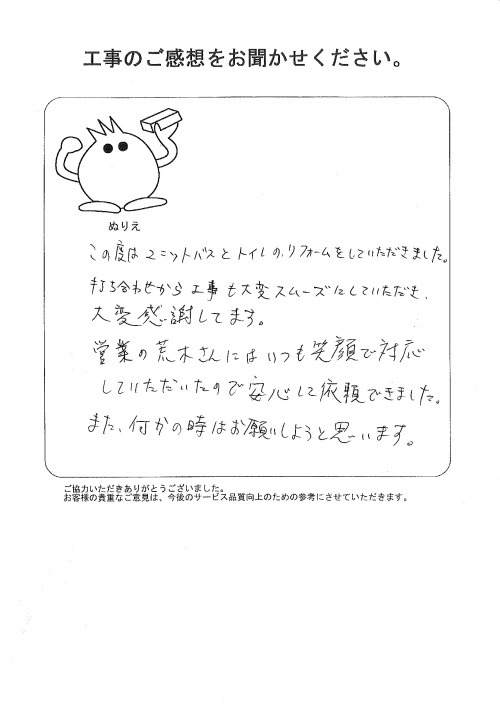 工事のご感想をお聞かせください。
ぬりえ
この度はユニットバスとトイレの、リフォームをしていただきました。
打ち合わせから工事も大変スムーズにしていただき、
大変感謝してます。
営業の荒木さんにはいつも笑顔で対応
していただいたので安心して依頼できました。
また、何かの時はお願いしようと思います。
ご協力いただきありがとうございました。
お客様の貴重なご意見は、今後のサービス品質向上のための参考にさせていただきます。